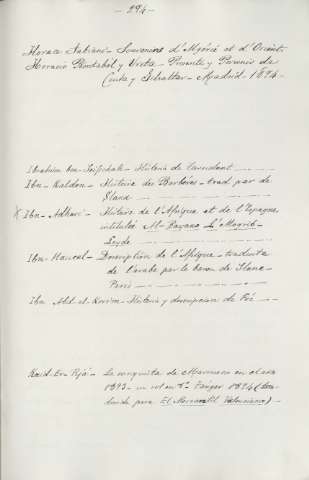 - 294 -
Horace Fabiani - Souvenirs d'Algérie et d'Orient.
Horacio Bentabol y Ureta - Frente y Perenis de
Ceuta y Gibraltar - Madrid - 1894 -
Ibrahim ben - Historia de
Ibn - Kaldon - Histoire des Berbéres - trad. par de
Slane
X Ibn - Adhari - Histoire de l'Afrique et de l'Espagne
intitulée Al-Bayano L'Mogrib -
Leyde
Ibn - Haucal - Description de l'Afrique - traduite
de l'arabe par le baron de Slane -
Paris
Ibn Abd-el-Kerim - Historia y descripcion de Fez
Raid-Er- - La conquista de Marruecos en el año
1893 - un vol en 8º Tanger 1894 (tra-
ducida para El Mercantil Valenciano) -